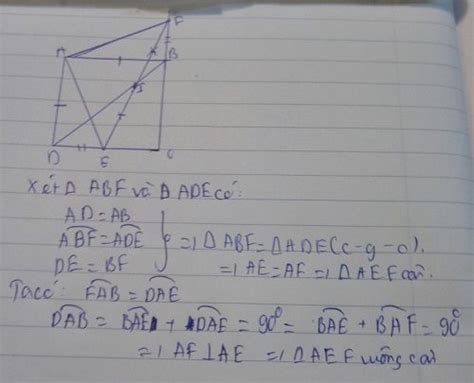 F
A B
I
D E C
Xét Δ ABF và Δ ADE có:
AD = AB
ABF = ADE } => Δ ABF = Δ ADE (c-g-c).
DE = BF => AE = AF => Δ AEF cân.
Ta có: FAB = DAE
DAB = BAE + DAE = 90° = BAE + BAF = 90°
=> AF ⊥ AE => Δ AEF vuông cân